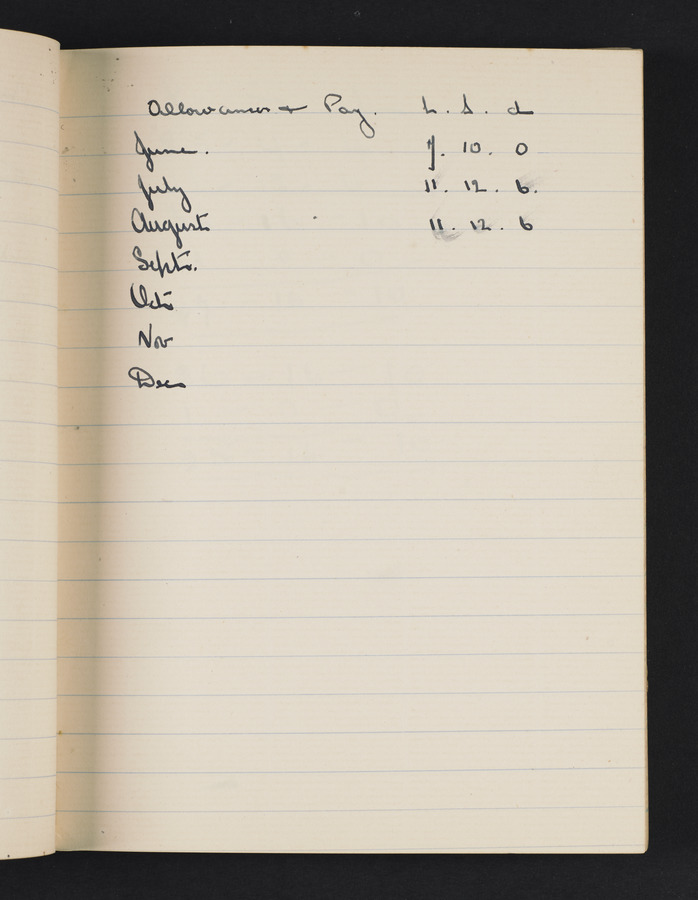 Allowances + Pay. L. S. d
June. 7. 10. 0
July 11. 12. 6.
August 11. 12. 6
Septr.
Octr
Nov
Dec